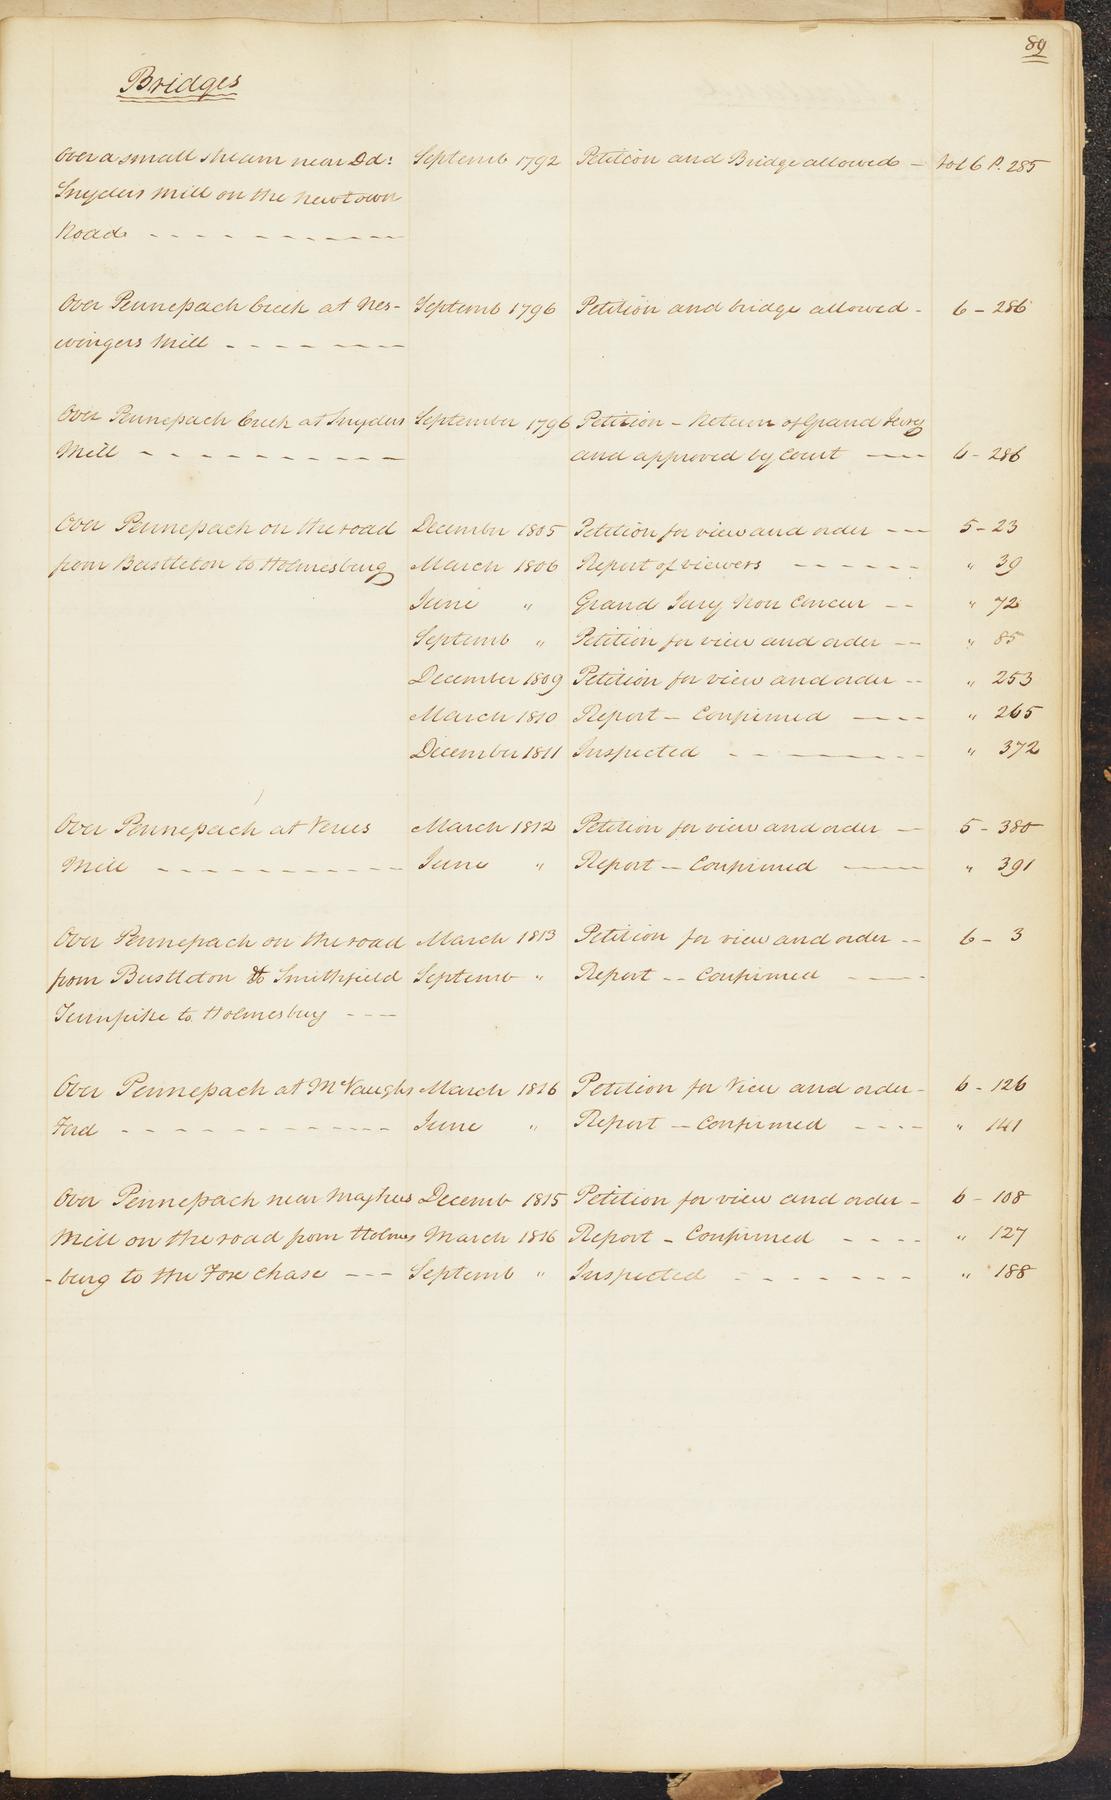 89
Bridges
Over a small stream near Ed: Septemb 1792 Petition and Bridge allowed - Vol 6 P. 285
Snyders Mill on the Newtown
Road
Over Pennepach Creek at Nes- Septemb 1796 Petition and bridge allowed - 6 - 286
wingers Mill
Over Pennepach Creek at Snyders September 1796 Petition - Return of Grand Jury
Mill and approved by Court 6 - 286
Over Pennepach on the road December 1805 Petition for view and order 5 - 23
from Bustleton to Holmesburg March 1806 Report of viewers " 39
June " Grand Jury Non Concur " 72
Septemb " Petition for view and order " 85
December 1809 Petition for view and order " 253
March 1810 Report - Confirmed " 265
December 1811 Inspected " 372
Over Pennepach at Verees March 1812 Petition for view and order 5 - 380
Mill June " Report - Confirmed " 391
Over Pennepach on the road March 1813 Petition for view and order 6 - 3
from Bustleton & Smithfield Septemb " Report - Confirmed
Turnpike to Holmesburg
Over Pennepach at McVaughs March 1816 Petition for View and order 6 - 126
Ford June " Report - Confirmed " 141
Over Pennepach near Decemb 1815 Petition for view and order 6 - 108
Mill on the road from Holmes March 1816 Report - Confirmed " 127
-burg to the Fox Chase Septemb " Inspected " 188